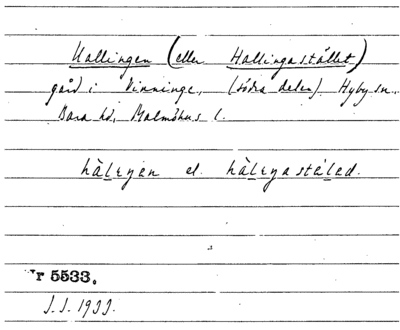 Hallingen (eller Hallingastället)
gård i Vinninge, (södra delen). Hyby sn.
Bara hd, Malmöhus l.
hàlıŋən el. hàlıŋastälad.
Nr 5533.
J.J. 1933.